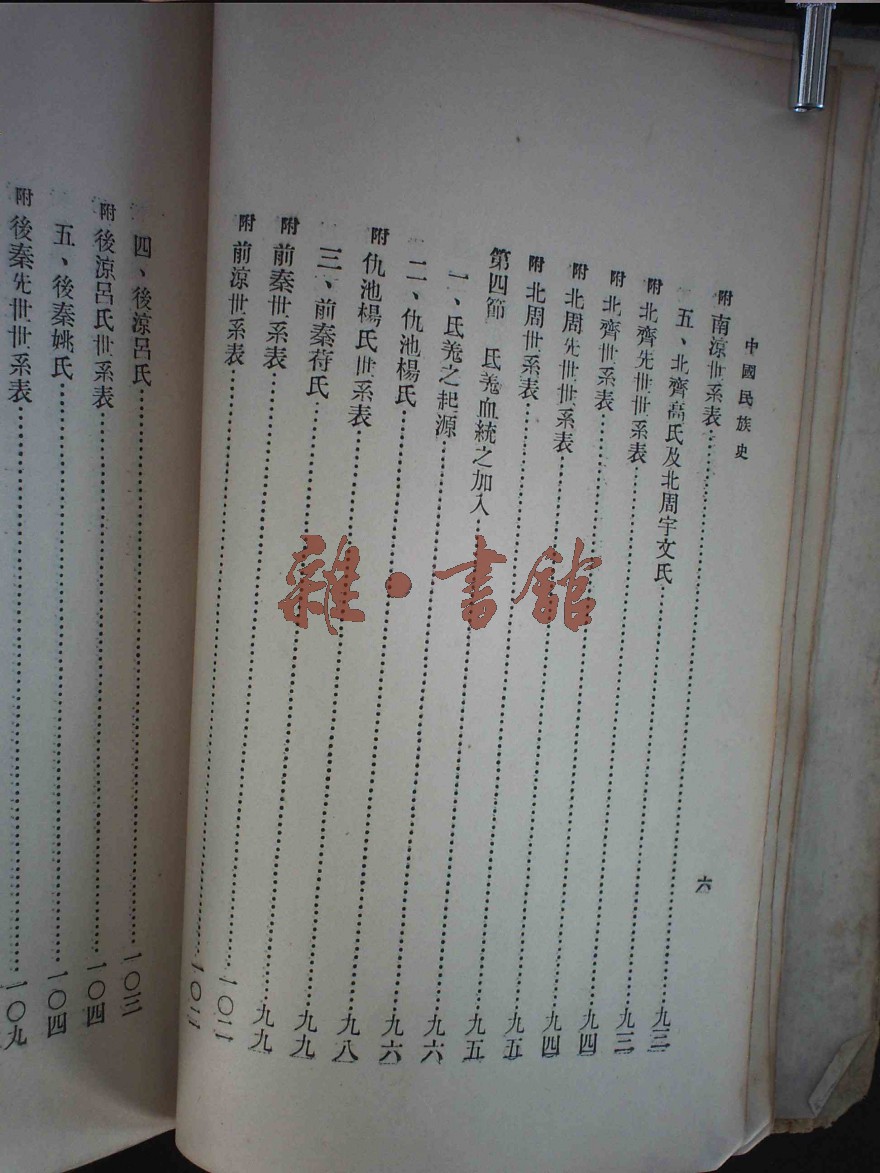 中國民族史
六
附 南涼世系表……九三
五、北齊高氏及北周宇文氏……九三
附 北齊先世世系表……九四
附 北齊世系表……九四
附 北周先世世系表……九五
附 北周世系表……九五
第四節 氐羌血統之加入……九六
一、氐羌之起源……九六
二、仇池楊氏……九八
附 仇池楊氏世系表……九九
三、前秦苻氏……九九
附 前秦世系表……一〇二
附 前涼世系表……一〇二
四、後涼呂氏……一〇三
附 後涼呂氏世系表……一〇四
五、後秦姚氏……一〇四
附 後秦先世世系表……一〇九
雜·書館